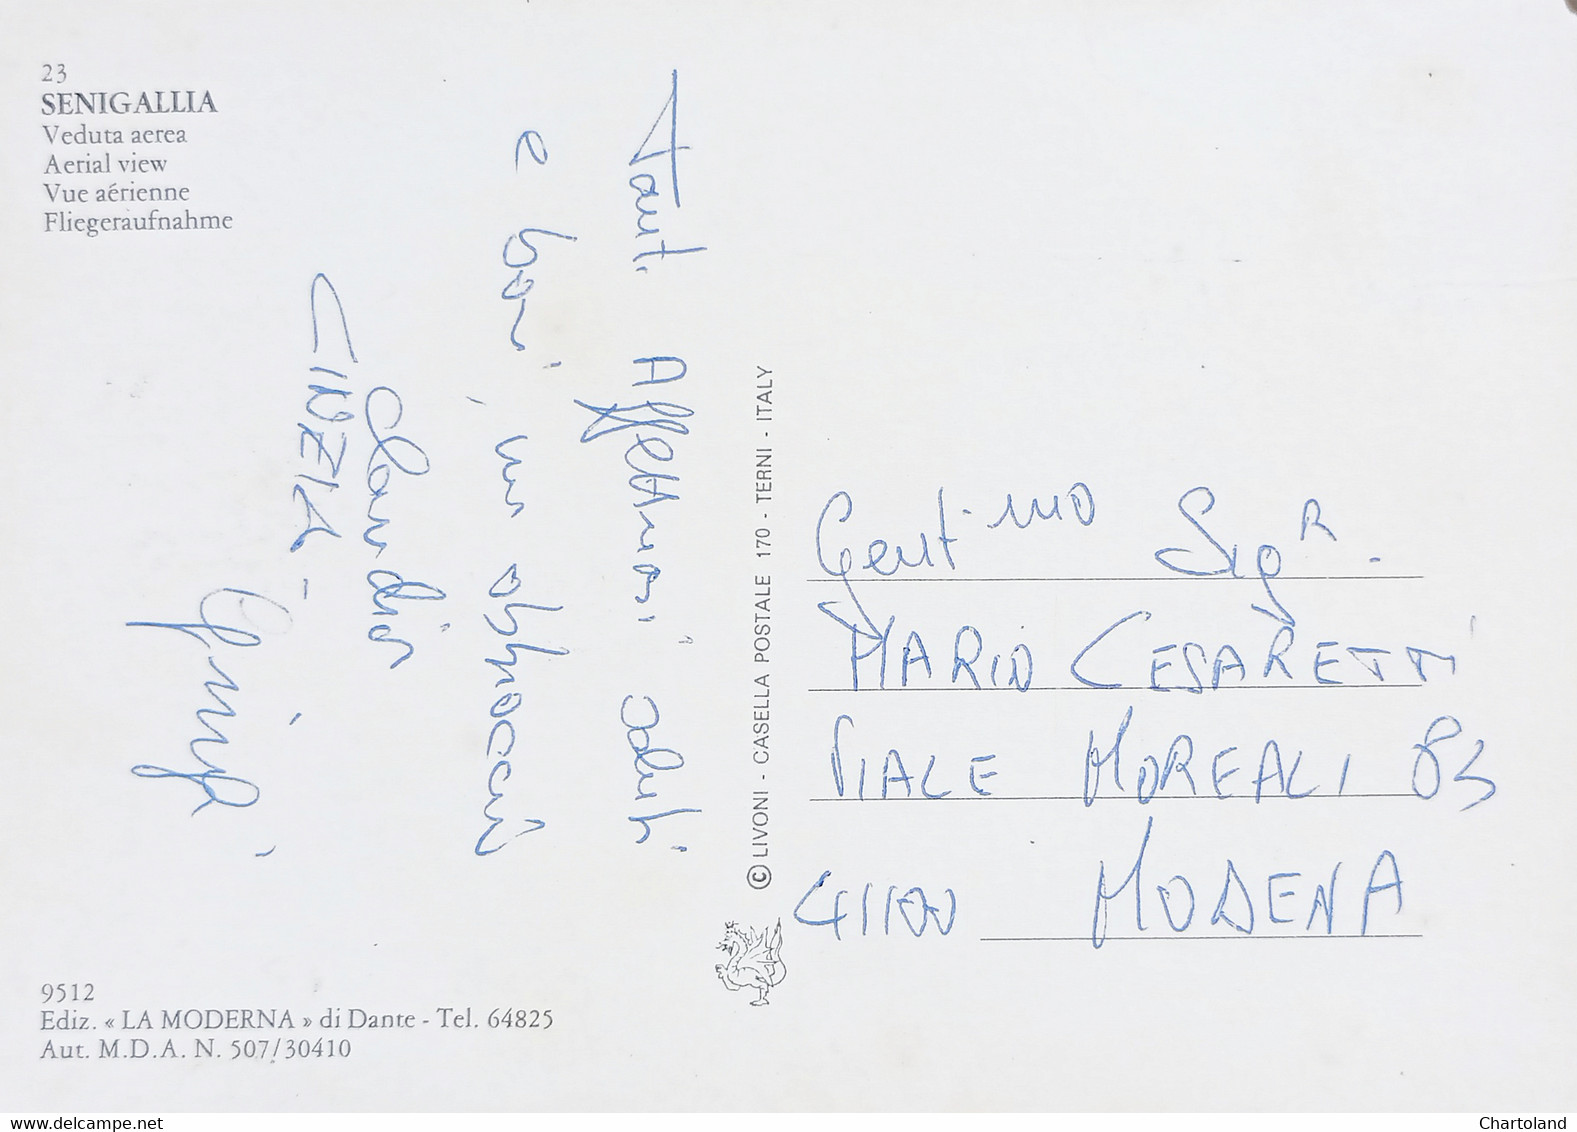 23
SENIGALLIA
Veduta aerea
Aerial view
Vue aérienne
Fliegeraufnahme
Tanti Affettuosi saluti
e baci, un abbraccio
Claudio
CINZIA -
© LIVONI - CASELLA POSTALE 170 - TERNI - ITALY
Gent.mo SigR.
MARIO CESARETTI
VIALE MOREALI 83
41100 MODENA
9512
Ediz. « LA MODERNA » di Dante - Tel. 64825
Aut. M.D.A. N. 507/30410
www.delcampe.net
Chartoland